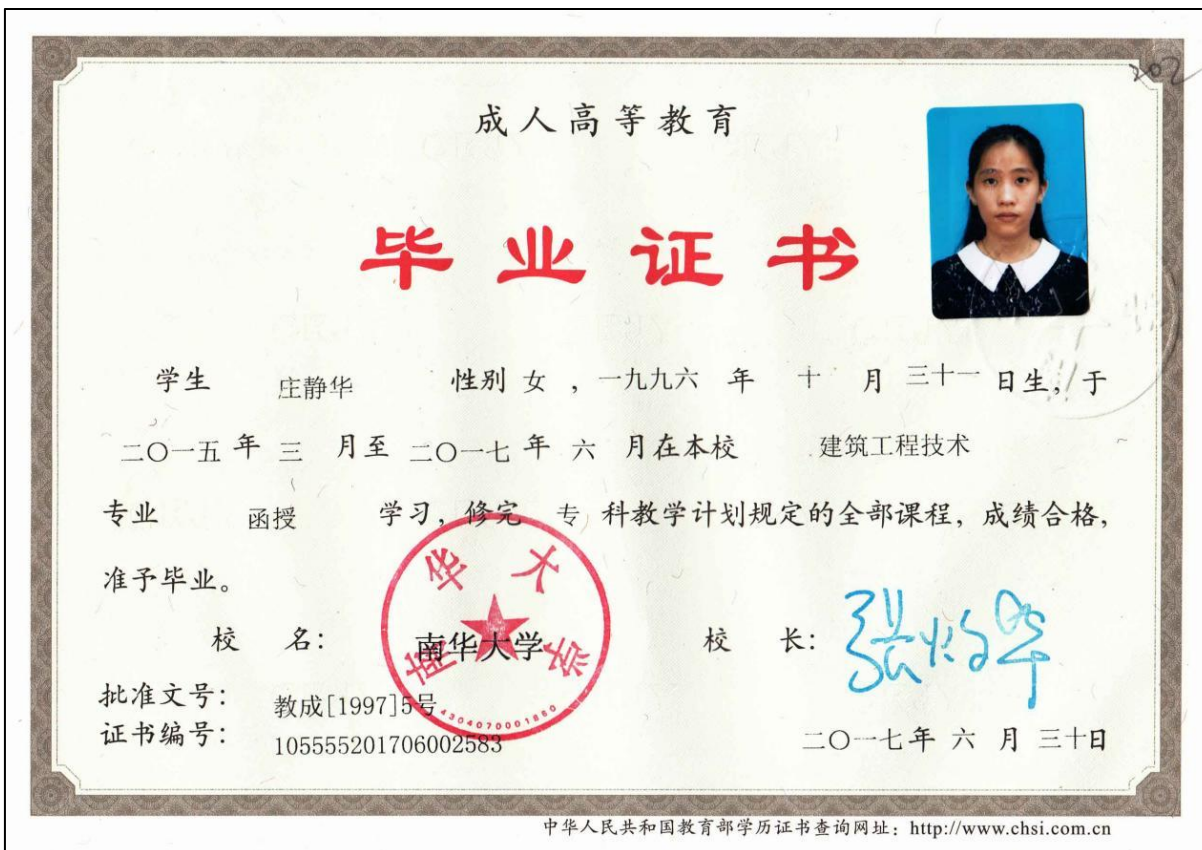 202
成人高等教育
毕业证书
学生 庄静华 性别 女 ,一九九六 年 十 月 三十一 日生,于
二〇一五 年 三 月至 二〇一七 年 六 月在本校 建筑工程技术
专业 函授 学习,修完 专 科教学计划规定的全部课程,成绩合格,
准予毕业。
校 名: 南华大学 校 长:
南华大学
批准文号: 教成[1997]5号
4304070001860
证书编号: 105555201706002583
二〇一七年 六 月 三十日
中华人民共和国教育部学历证书查询网址:http://www.chsi.com.cn